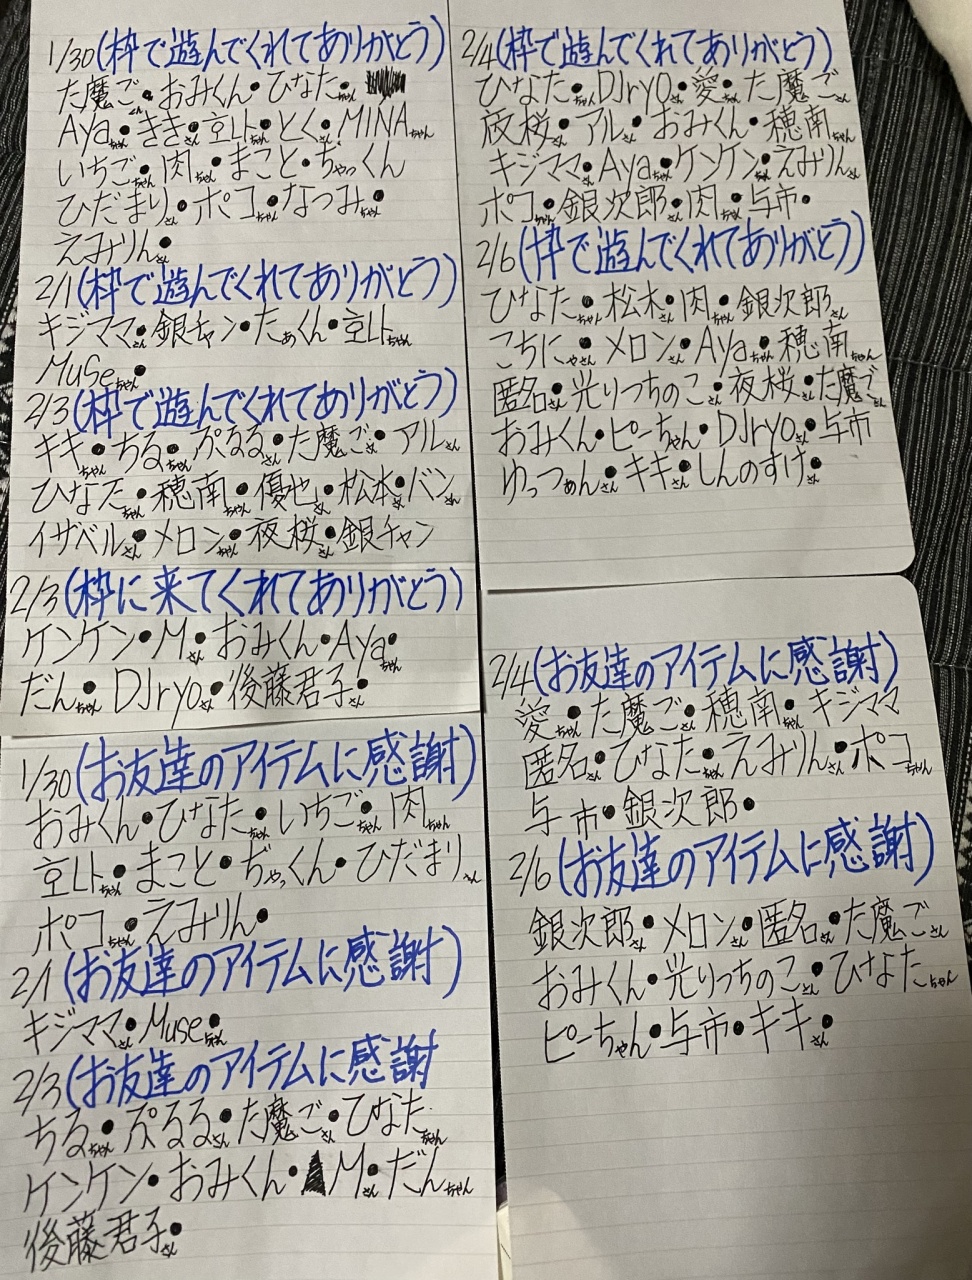 1/30(枠で遊んでくれてありがとう)
た魔ごさん・おみくん・ひなたちゃん・
Ayaちゃん・ききさん・京Lトちゃん・とくさん・MINAちゃん
いちごちゃん・肉ちゃん・まこと・ちゃっくん
ひだまりさん・ポコちゃん・なつみちゃん・
えみりんさん・
2/1(枠で遊んでくれてありがとう)
キジママさん・銀チャン・たぁくん・京Lトちゃん
Museちゃん・
2/3(枠で遊んでくれてありがとう)
キキちゃん・ちるちゃん・ぷるるさん・た魔ごさん・アルさん
ひなたちゃん・穂南ちゃん・優也さん・松本さん・バンさん
イザベルさん・メロンちゃん・夜桜さん・銀チャン
2/3(枠に来てくれてありがとう)
ケンケン・Mさん・おみくん・Ayaちゃん・
だんちゃん・DJryoさん・後藤君子さん・
1/30(お友達のアイテムに感謝)
おみくん・ひなたちゃん・いちごちゃん・肉ちゃん
京Lトちゃん・まこと・ぢゃっくん・ひだまりさん
ポコちゃん・えみりん・
2/1(お友達のアイテムに感謝)
キジママさん・Museちゃん・
2/3(お友達のアイテムに感謝
ちるちゃん・ぷるるさん・た魔ごさん・ひなたちゃん
ケンケン・おみくん・Mさん・だんちゃん
後藤君子さん・
2/4(枠で遊んでくれてありがとう)
ひなたちゃん・DJryoさん・愛ちゃん・た魔ごさん
夜桜さん・アルさん・おみくん・穂南ちゃん
キジママさん・Ayaちゃん・ケンケンさん・えみりんさん
ポコちゃん・銀次郎さん・肉ちゃん・与市・
2/6(枠で遊んでくれてありがとう)
ひなたちゃん・松本さん・肉ちゃん・銀次郎さん
こちにゃさん・メロンさん・Ayaちゃん・穂南ちゃん
匿名さん・光りつちのこさん・夜桜さん・た魔ごさん
おみくん・ピーちゃん・DJryoさん・与市
ゆっつぁんさん・キキさん・しんのすけさん・
2/4(お友達のアイテムに感謝)
愛ちゃん・た魔ごさん・穂南ちゃん・キジママ
匿名さん・ひなたちゃん・えみりんさん・ポコちゃん
与市・銀次郎・
2/6(お友達のアイテムに感謝)
銀次郎さん・メロンさん・匿名さん・た魔ごさん
おみくん・光りつちのこさん・ひなたちゃん
ピーちゃん・与市・キキさん・